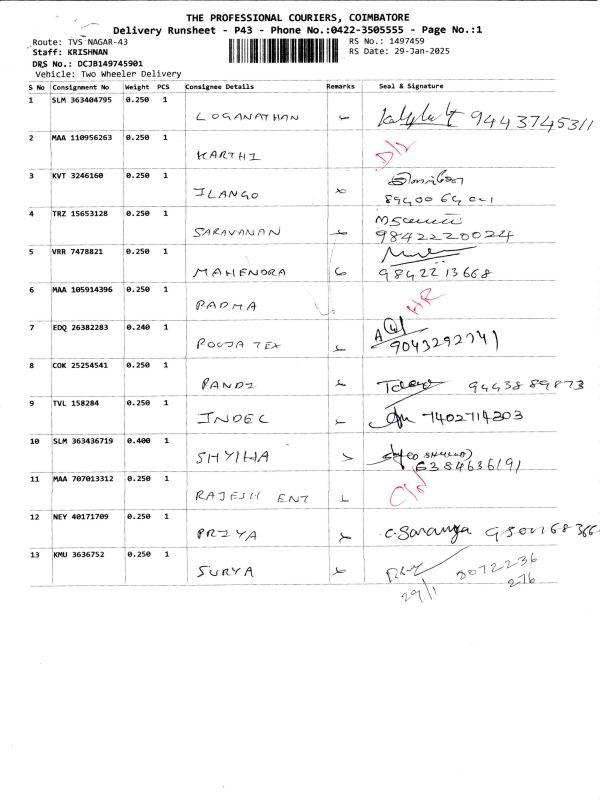 THE PROFESSIONAL COURIERS, COIMBATORE
Delivery Runsheet - P43 - Phone No.:0422-3505555 - Page No.:1
Route: TVS NAGAR-43 RS No.: 1497459
Staff: KRISHNAN RS Date: 29-Jan-2025
DRS No.: DCJB149745901
Vehicle: Two Wheeler Delivery
S No Consignment No Weight PCS Consignee Details Remarks Seal & Signature
1 SLM 363404795 0.250 1 LOGANATHAN 9443745311
2 MAA 110956263 0.250 1 KARTHI D/L
3 KVT 3246160 0.250 1 ILANGO
4 TRZ 15653128 0.250 1 SARAVANAN 9842220024
5 VRR 7478821 0.250 1 MAHENDRA 9842213668
6 MAA 105914396 0.250 1 PADMA HR
7 EDQ 26382283 0.240 1 POOJA TEX 9043292741
8 COK 25254541 0.250 1 PANDI 9443889873
9 TVL 158284 0.250 1 INDEC 7402714303
10 SLM 363436719 0.400 1 6384636191
11 MAA 707013312 0.250 1 RAJESH ENT
12 NEY 40171709 0.250 1 PRIYA C. Saranya
13 KMU 3636752 0.250 1 SURYA 8072236
276
29/1